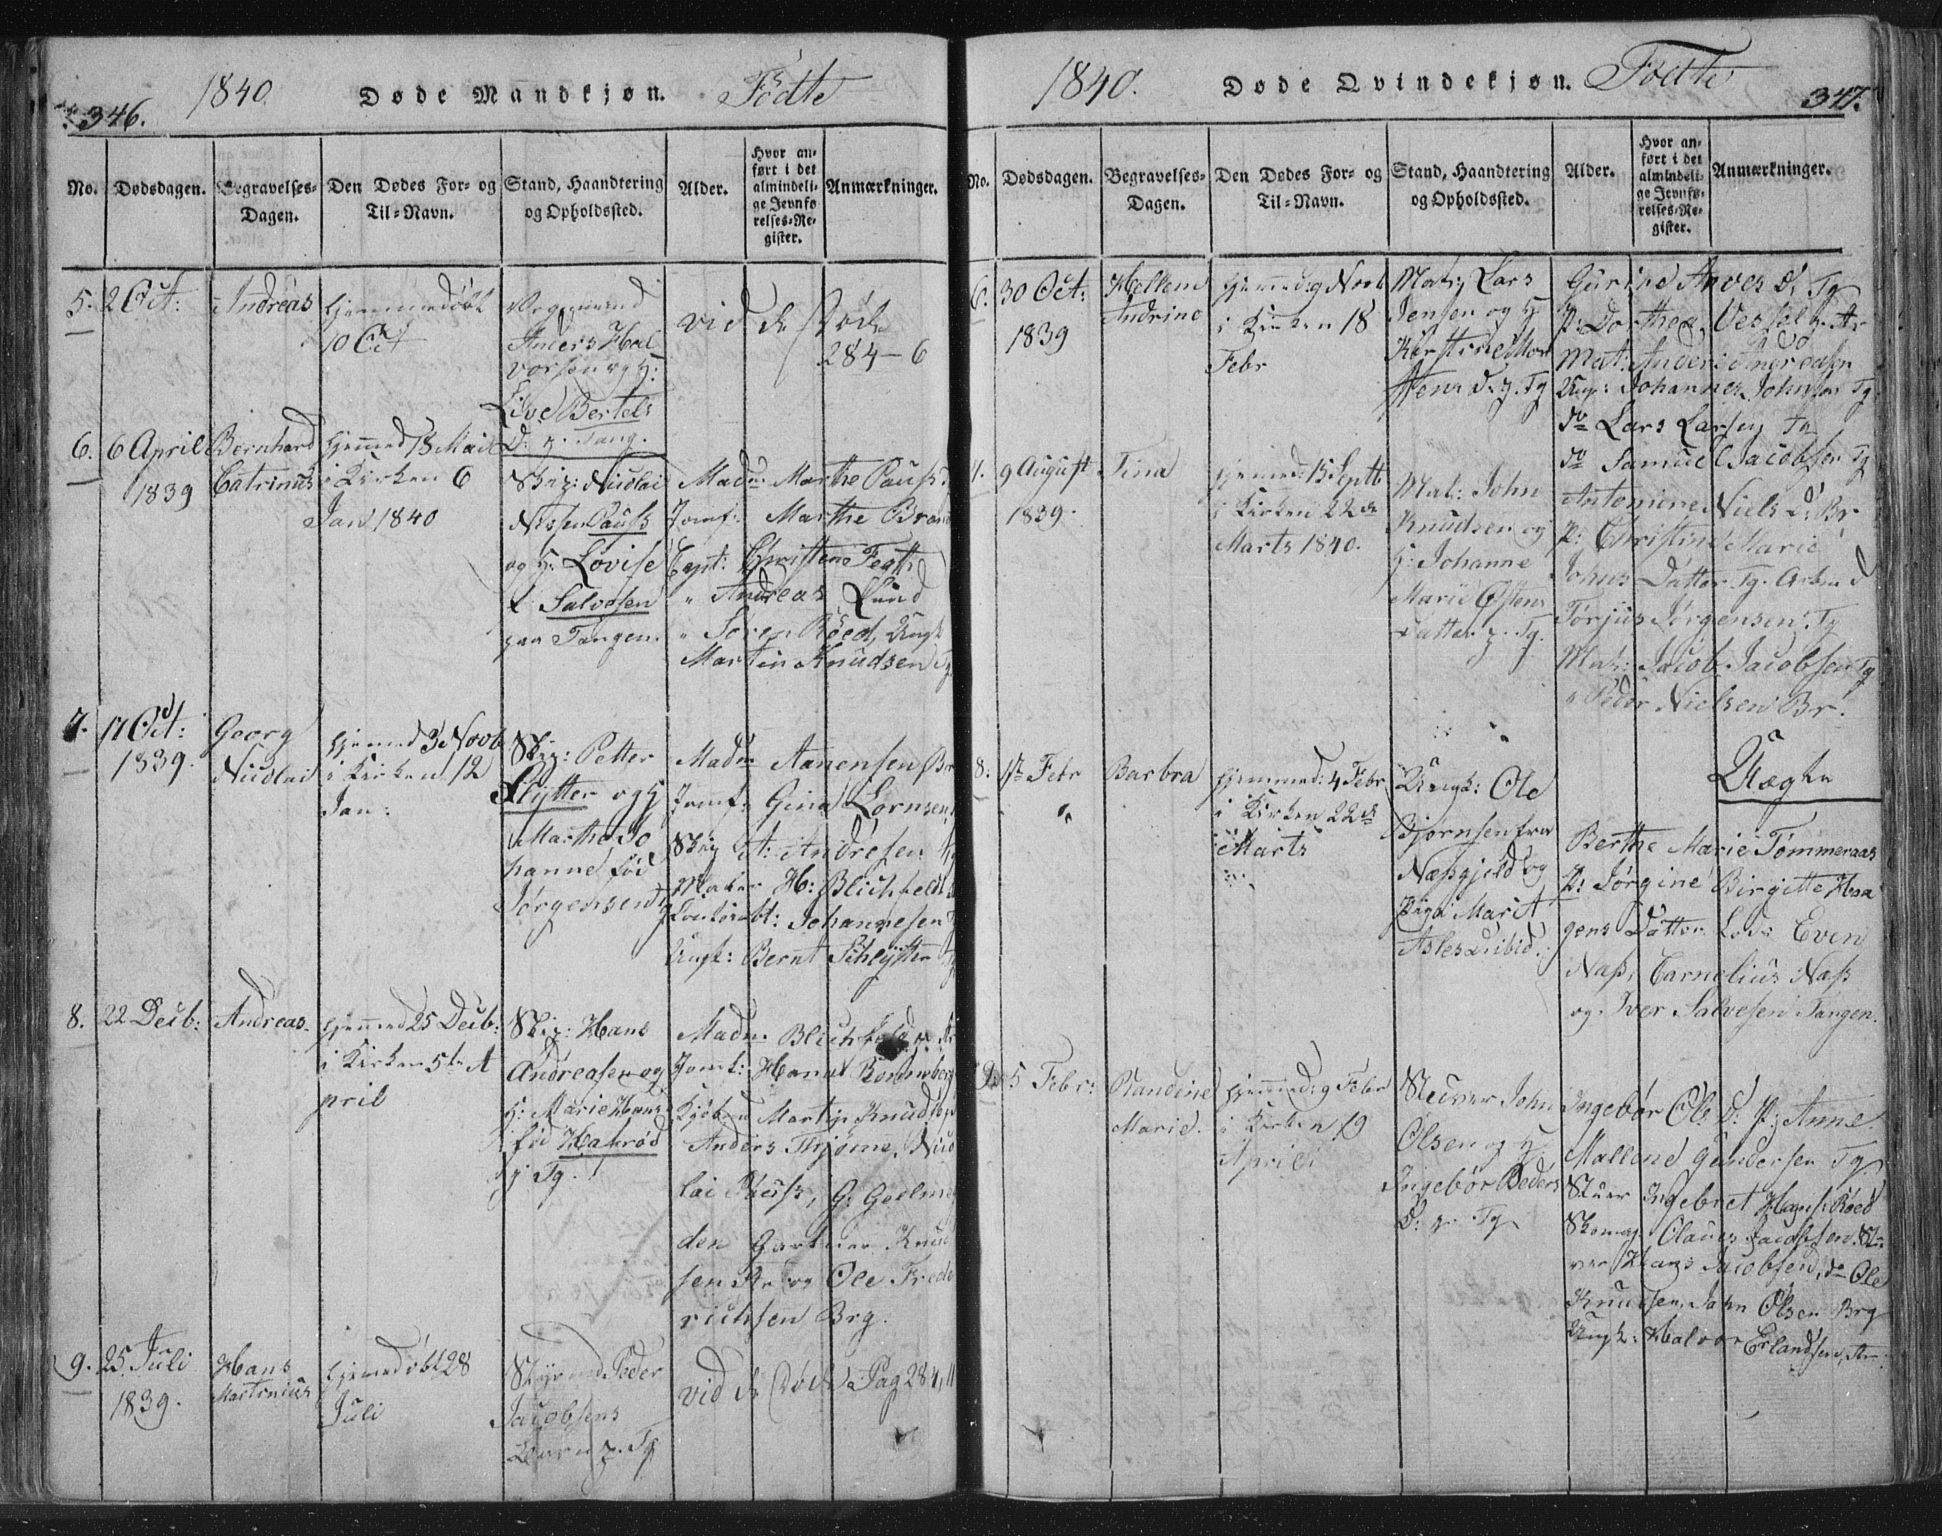 346.
1840
Døde Mandkjøn.
Födte
No.
Dødsdagen.
Begravelses-
Dagen.
Den Dødes For- og
Til-Navn.
Stand, Haandtering
og Opholdssted.
Alder.
Hvor an-
ført i det
almindeli-
ge Jevnfø-
relses-Re-
gister.
Anmærkninger.
5.
2 Oct:
Andreas
hjemmedøbt
10 Oct
Anders Hal
vorsen og H:
Live Bertels
D: p. Tang.
vid de Døde
284-6
6.
6 April
1839
Bernhard
Catrinus
hjemmed 18 Mai
i Kirken 6
Jan 1840
Skip: Nicolai
Nissen Pauss
og H: Lovise
f. Salvesen
paa Tangen.
Madm: Marthe Pauss
Jomf: Marthe
Capt: Christen Feeth
" Andreas Lund
" Soren Röed, Ungk
Martin Knudsen Tg
7.
17 Oct:
1839.
Georg
Nicolai
hjemmed 3 Novb
i Kirken 12
Jan:
Skip: Petter
Slytter og H
Marthe Jo
hanne fød
Jørgensen Tg
Madm Aanensen Br
Jomf: Gine Lornsen
Skip A: Andresen
H: Blichfeldt
Johannesen
Ungk: Bernt Schlytter
8.
22 Decb:
Andreas.
hjemmed 25 Decb:
i Kirken 5te A
pril
Skip: Hans
Andreasen og
H: Marie Hans
fød Hahrød
p Tg.
Madm. Blichfeld
Jomf: Hanna
Martin Knudsen
Anders Thjöme, Nico
lai Pauss, G:
den Gartner Knud
sen Br og Ole Frede
richsen Brg.
9.
25 Juli
1839.
Hans
Martinius
hjemmedøbt 28
Juli
Peder
Jacobsens
Barn p. Tg
vid de Døde Pag 284, 11
1840.
Døde Qvindekjøn.
Fødte
347.
No.
Dødsdagen.
Begravelses-
Dagen.
Den Dødes For- og
Til-Navn.
Stand, Haandtering
og Opholdssted.
Alder.
Hvor an-
ført i det
almindeli-
ge Jevnfø-
relses-Re-
gister.
Anmærkninger.
6.
30 Oct:
1839
Hellene
Andrine
hjemmed 9 Novb
i Kirken 18
Febr
Mat: Lars
Jensen og H
Kirstine Mor
tens D. p. Tg
Gurine Anves D. Tg
P: Dorthea Vessel
Mat: Anders Andreasen
Ungk: Johannes Johnsen Tg
do Lars Larsen Tg
do Samuel Jacobsen Tg
7.
9 August
1839.
Tina
hjemmed: 15 Septb
i Kirken 22de
Marts 1840.
Mat: John
Knudsen og
H: Johanne
Marie Østens
Datter p. Tg.
Antomine Niels D: Br
P: Christine Marie
Johns Datter Tg. Arbm
Torjus Jørgensen Tg
Mat: Jacob Jacobsen Tg
" Peder Nielsen Br.
8.
1te Febr
"
Barbra
hjemmed: 4 Febr
i Kirken 22de
Marts
Ungk: Ole
Bjørnsen fra
Næsgjeld og
Pige Marit
Uægte
Berthe Marie Tømmeraas
P: Jørgine Birgitte Haa
gens Datter Lods Even
Næss, Carnelius Næss
og Iver Salvesen Tangen.
9.
5 Febr:
Randine
Marie.
hjemmed: 9 Febr
i Kirken 19
April
Stuver John
Olsen og H
Ingebør Peders
D: p Tg
Ingebør Ole D: P: Anne
Mallene Gundersen Tg
Stuer Ingebret Hans: Röed
Skomag. Claus Jacobsen. Stu
ver Hans Jacobsen, do Ole
Knudsen, John Olsen Brg
Ungk: Halvor Erlandsen